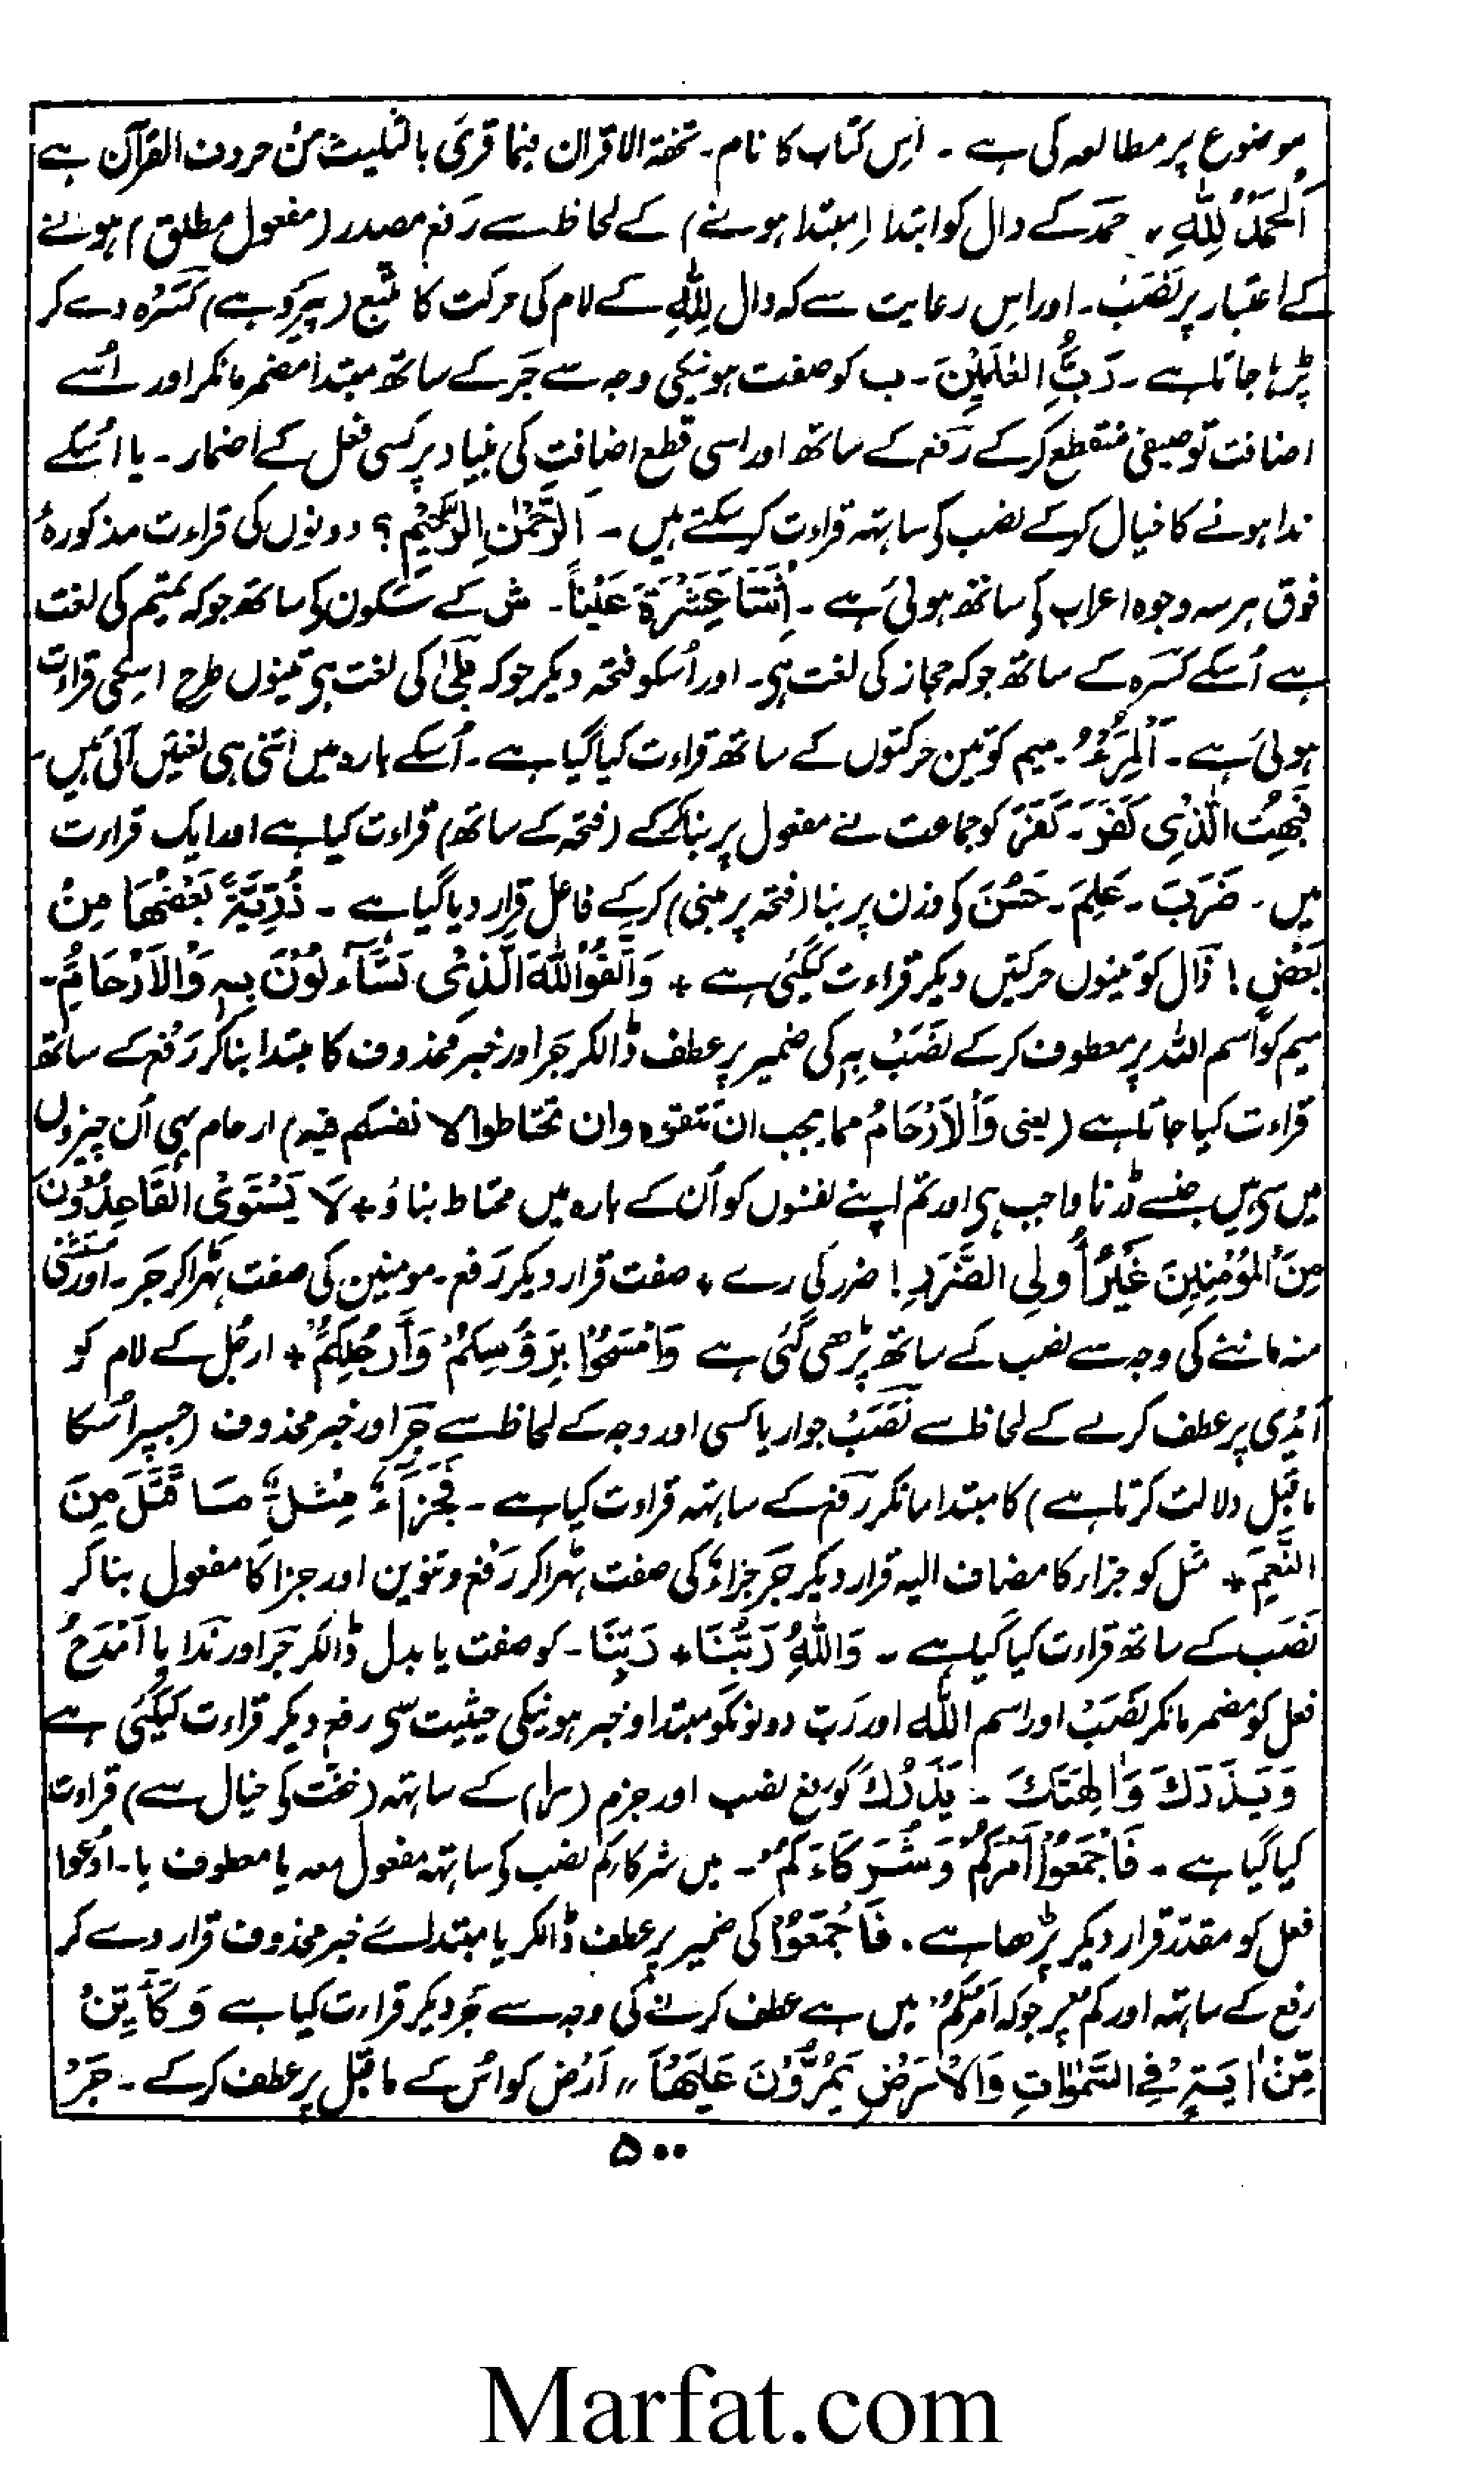 موضوع پر مطالعہ کی ہے ۔ اس کتاب کا نام ۔ تحفۃ الاقران فیما قرئ بالثلیث من حروف القرآن ہے
اَلْحَمْدُ لِلّٰهِ، حمد کے دال کو ابتدا (مبتدا ہونے) کے لحاظ سے رَفع مصدر (مفعول مطلق) ہونے
کے اعتبار پر نَصَبْ ۔ اور اس رعایت سے کہ دال لِلّٰهِ کے لام کی حرکت کا متبع (پیرو ہے) کسَرہ دے کر
پڑہا جاتا ہے ۔ رَبُِّ الْعٰلَمِیْنَ ۔ ب کو صفت ہونیکی وجہ سے جَر کے ساتھ مبتدا مضمر مانکر اور اُسے
اضافت توصیفی منقطع کر کے رَفع کے ساتھ اور اسی قطع اضافت کی بنیاد پر کسی فعل کے اضمار ۔ یا اُسکے
ندا ہونے کا خیال کر کے نصب کے ساتہہ قراءت کر سکتے ہیں ۔ اَلرَّحْمٰنِ الرَّحِیْمِ ؟ دونوں کی قراءت مذکورۂ
فوق ہر سہ وجوہ اعراب کے ساتھ ہوئی ہے ۔ اِثْنَتَا عَشْرَةَ عَیْناً ۔ ش کے سَکون کے ساتھ جو کہ تمیم کی لغت
ہے اُسکے کسَرہ کے ساتھ جو کہ حجاز کی لغت ہے ۔ اور اُسکو فتحہ دیکر جو کہ بلیٰ کی لغت ہے تینوں طرح اسکی قراءت
ہوئی ہے ۔ اَلْمَرْءُ میم کو تین حرکتوں کے ساتھ قراءت کیا گیا ہے ۔ اُسکے بارہ میں اتنی ہی لغتیں آئی ہیں ۔
فَبُهِتَ الَّذِیْ کَفَرَ ۔ کَفَرَ کو جماعت نے مفعول پر بنا کر کے (فتحہ کے ساتھ) قراءت کیا ہے اور ایک قراءت
میں ۔ ضَرَبَ ۔ عَلِمَ ۔ حَسُنَ کے وزن پر بنا (فتحہ پر مبنی) کر کے فاعل قرار دیا گیا ہے ۔ ذُرِّیَّةً بَعْضُهَا مِنْ
بَعْضٍ ! ذال کو تینوں حرکتیں دیکر قراءت کیگئی ہے + وَاتَّقُوا اللّٰهَ الَّذِیْ تَسَّآءَلُوْنَ بِهٖ وَالْاَرْحَامَ ۔
میم کو اسم اللہ پر معطوف کر کے نَصَبْ بِہٖ کی ضمیر پر عطف ڈالکر جَر اور خبر محذوف کا مبتدا بنا کر رَفع کے ساتھ
قراءت کیا جاتا ہے (یعنی وَالْاَرْحَامُ مما یجب ان تتقوہ وان تحتاطوا لا نفسکم فیہ) ارحام بھی اُن چیزوں
میں سے ہیں جنسے ڈرنا واجب ہے اور تم اپنے نفسوں کو اُن کے بارہ میں محتاط بناؤ + لَا یَسْتَوِی الْقَاعِدُوْنَ
مِنَ الْمُؤْمِنِیْنَ غَیْرُ اُولِی الضَّرَرِ ! ضرر کی رے + صفت قرار دیکر رَفع ۔ مومنین کی صفت ٹہرا کر جَر ۔ اور مستثنیٰ
منہ ماننے کی وجہ سے نصب کے ساتھ پڑھی گئی ہے وَامْسَحُوْا بِرُؤُسِکُمْ وَاَرْجُلِکُمْ + ارجُل کے لام کو
اَیْدِی پر عطف کرنے کے لحاظ سے نَصَبْ جوار یا کسی اور وجہ کے لحاظ سے جَر اور خبر محذوف (جسپر اُسکا
ماقبل دلالت کرتا ہے) کا مبتدا مانکر رَفع کے ساتہہ قراءت کیا ہے ۔ فَجَزَآءٌ مِثْلُ مَا قَتَلَ مِنَ
النَّعَمِ + مثل کو جزاء کا مضاف الیہ قرار دیکر جَر جَزاءٌ کی صفت ٹہرا کر رَفع و تنوین اور جزا کا مفعول بنا کر
نَصَب کے ساتھ قراءت کیا گیا ہے ۔ وَاللّٰهِ رَبِّنَا + رَبِّنَا ۔ کو صفت یا بدل ڈالکر جَر اور نَدا یا اَمْدَحُ
فعل کو مضمر مانکر نَصَبْ اور اسم اللّٰہ اور رَبّ دونو نکو مبتدا و خبر ہونیکی حیثیت سے رفع دیکر قراءت کیگئی ہے
وَیَذَرَكَ وَاٰلِهَتَكَ ۔ یَذَرُكَ کو رفع نصب اور جزم (را) کے ساتہہ (خفّت کے خیال سے) قراءت
کیا گیا ہے ۔ فَاَجْمِعُوْا اَمْرَکُمْ وَشُرَکَاءَکُمْ ۔ میں شرکاءکم نصب کے ساتہہ مفعول معہ یا معطوف یا ۔ اُدْعوا
فعل کو مقدّر قرار دیکر پڑھا ہے ۔ فَاَجْمِعُوْا کی ضمیر پر عطف ڈالکر یا مبتدائے خبر محذوف قرار دے کر
رفع کے ساتہہ اور کم پر جو کہ اَمْرَکُمْ میں ہے عطف کرنے کی وجہ سے جَر دیکر قراءت کیا ہے وَکَأَیِّنْ
مِّنْ اٰیَةٍ فِی السَّمٰوَاتِ وَالْاَرْضِ یَمُرُّوْنَ عَلَیْهَا ،، اَرْض کو اُس کے ماقبل پر عطف کر کے ۔ جَرْ
۵۰۰
Marfat.com